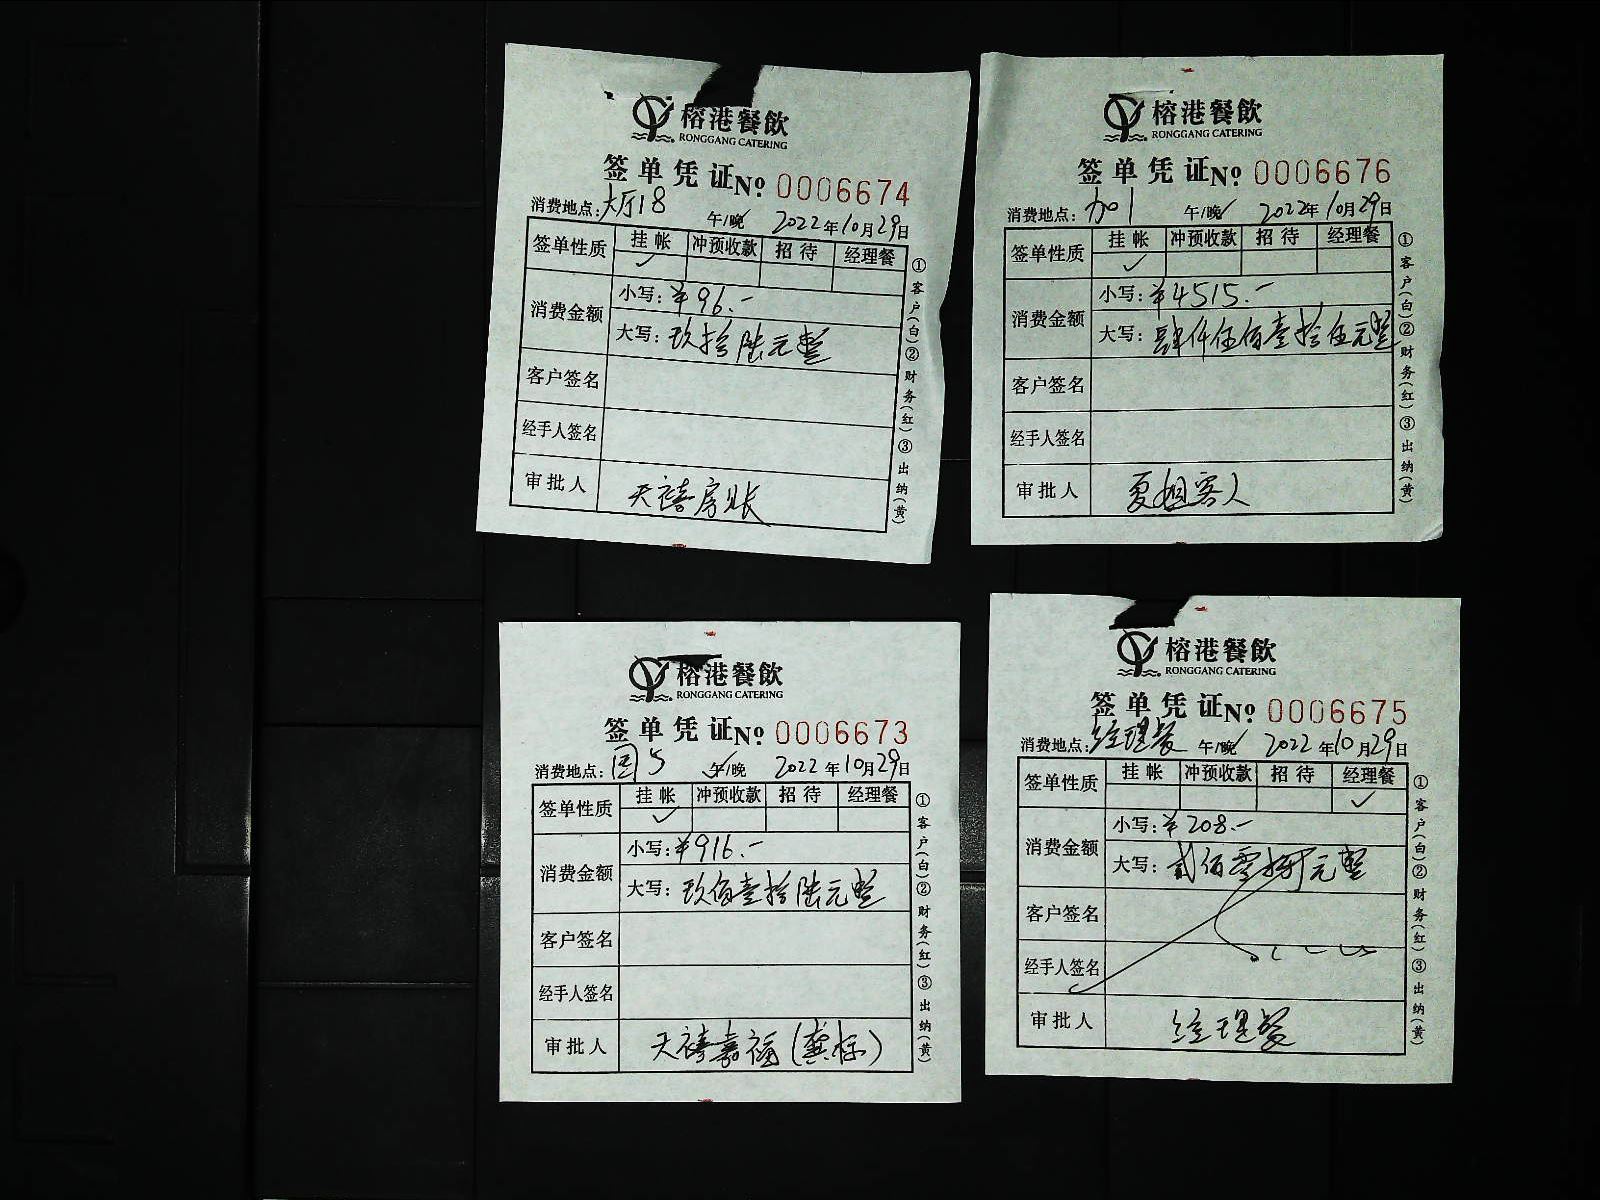 榕港餐飲
RONGGANG CATERING
签单凭证 No. 0006674
消费地点：大厅18 午/晚✓ 2022年10月29日
签单性质 挂帐 冲预收款 招待 经理餐
✓
消费金额 小写：¥96.-
大写：玖拾陆元整
客户签名
经手人签名
审批人 天禧房账
①客户(白)②财务(红)③出纳(黄)
榕港餐飲
RONGGANG CATERING
签单凭证 No. 0006676
消费地点：加1 午/晚✓ 2022年10月29日
签单性质 挂帐 冲预收款 招待 经理餐
✓
消费金额 小写：¥4515.-
大写：肆仟伍佰壹拾伍元整
客户签名
经手人签名
审批人 夏姐客人
①客户(白)②财务(红)③出纳(黄)
榕港餐飲
RONGGANG CATERING
签单凭证 No. 0006673
消费地点： 5 午✓/晚 2022年10月29日
签单性质 挂帐 冲预收款 招待 经理餐
✓
消费金额 小写：¥916.-
大写：玖佰壹拾陆元整
客户签名
经手人签名
审批人 天禧嘉福
①客户(白)②财务(红)③出纳(黄)
榕港餐飲
RONGGANG CATERING
签单凭证 No. 0006675
消费地点：经理餐 午/晚✓ 2022年10月29日
签单性质 挂帐 冲预收款 招待 经理餐
✓
消费金额 小写：¥208.-
大写：贰佰零捌元整
客户签名
经手人签名
审批人 经理餐
①客户(白)②财务(红)③出纳(黄)